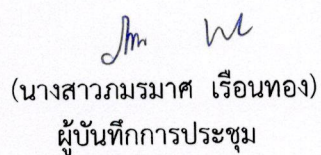 (นางสาวภมรมาศ เรือนทอง)
ผู้บันทึกการประชุม